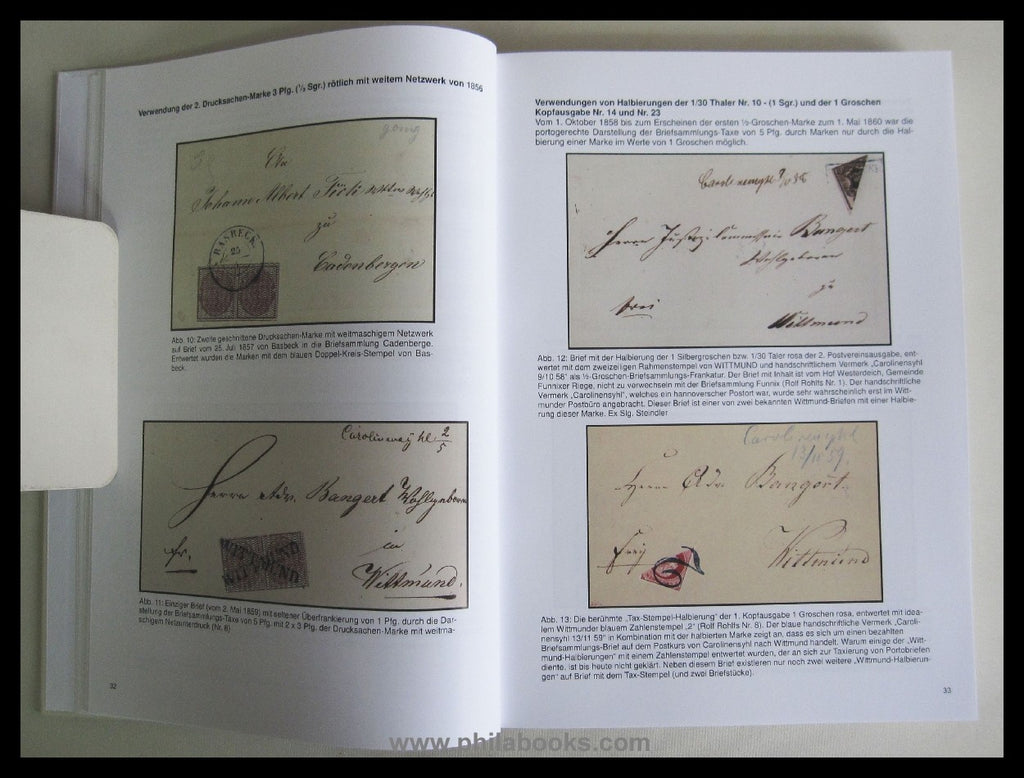 Verwendung der 2. Drucksachen-Marke 3 Pfg. (⅓ Sgr.) rötlich mit weitem Netzwerk von 1856
Johann Albert
zu
Cadenberge
BASBECK
25
Abb. 10: Zweite geschnittene Drucksachen-Marke mit weitmaschigem Netzwerk
auf Brief vom 25. Juli 1857 von Basbeck in die Briefsammlung Cadenberge.
Entwertet wurden die Marken mit dem blauen Doppel-Kreis-Stempel von Bas-
beck.
Carolinensyhl 2/5
Herrn Adv. Bangert Wohlgeboren
in
fr.
Wittmund.
WITTMUND
WITTMUND
Abb. 11: Einziger Brief (vom 2. Mai 1859) mit seltener Überfrankierung von 1 Pfg. durch die Dar-
stellung der Briefsammlungs-Taxe von 5 Pfg. mit 2 x 3 Pfg. der Drucksachen-Marke mit weitma-
schigem Netzunterdruck (Nr. 8)
32
Verwendungen von Halbierungen der 1/30 Thaler Nr. 10 - (1 Sgr.) und der 1 Groschen
Kopfausgabe Nr. 14 und Nr. 23
Vom 1. Oktober 1858 bis zum Erscheinen der ersten ½-Groschen-Marke zum 1. Mai 1860 war die
portogerechte Darstellung der Briefsammlungs-Taxe von 5 Pfg. durch Marken nur durch die Hal-
bierung einer Marke im Werte von 1 Groschen möglich.
Carolinensyhl 9/10 58
Herrn Justizcommissär Bangert
Wohlgeboren
zu
frei
Wittmund
Abb. 12: Brief mit der Halbierung der 1 Silbergroschen bzw. 1/30 Taler rosa der 2. Postvereinsausgabe, ent-
wertet mit dem zweizeiligen Rahmenstempel von WITTMUND und handschriftlichem Vermerk „Carolinensyl
9/10 58" als ½-Groschen-Briefsammlungs-Frankatur. Der Brief mit Inhalt ist vom Hof Westerdeich, Gemeinde
Funnixer Riege, nicht zu verwechseln mit der Briefsammlung Funnix (Rolf Rohlfs Nr. 1). Der handschriftliche
Vermerk „Carolinensyhl", welches ein hannoverscher Postort war, wurde sehr wahrscheinlich erst im Witt-
munder Postbüro angebracht. Dieser Brief ist einer von zwei bekannten Wittmund-Briefen mit einer Halbie-
rung dieser Marke. Ex Slg. Steindler
Carolinensyhl
13/11 59
Herrn Adv. Bangert
Frey
Wittmund
Abb. 13: Die berühmte „Tax-Stempel-Halbierung" der 1. Kopfausgabe 1 Groschen rosa, entwertet mit idea-
lem Wittmunder blauem Zahlenstempel „2" (Rolf Rohlfs Nr. 8). Der blaue handschriftliche Vermerk „Caroli-
nensyhl 13/11 59" in Kombination mit der halbierten Marke zeigt an, dass es sich um einen bezahlten
Briefsammlungs-Brief auf dem Postkurs von Carolinensyhl nach Wittmund handelt. Warum einige der „Witt-
mund-Halbierungen" mit einem Zahlenstempel entwertet wurden, der an sich zur Taxierung von Portobriefen
diente, ist bis heute nicht geklärt. Neben diesem Brief existieren nur noch zwei weitere „Wittmund-Halbierun-
gen" auf Brief mit dem Tax-Stempel (und zwei Briefstücke).
33
www.philabooks.com